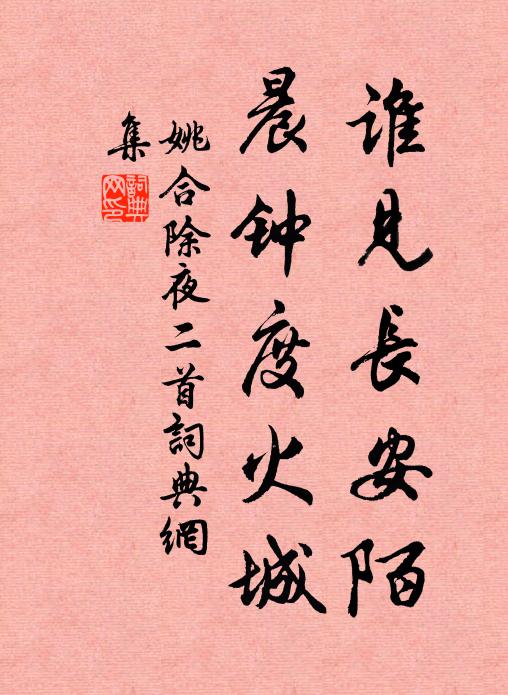 谁见長安陌
晨钟度火城
姚合除夜二首詞典網
集
詞典
网印